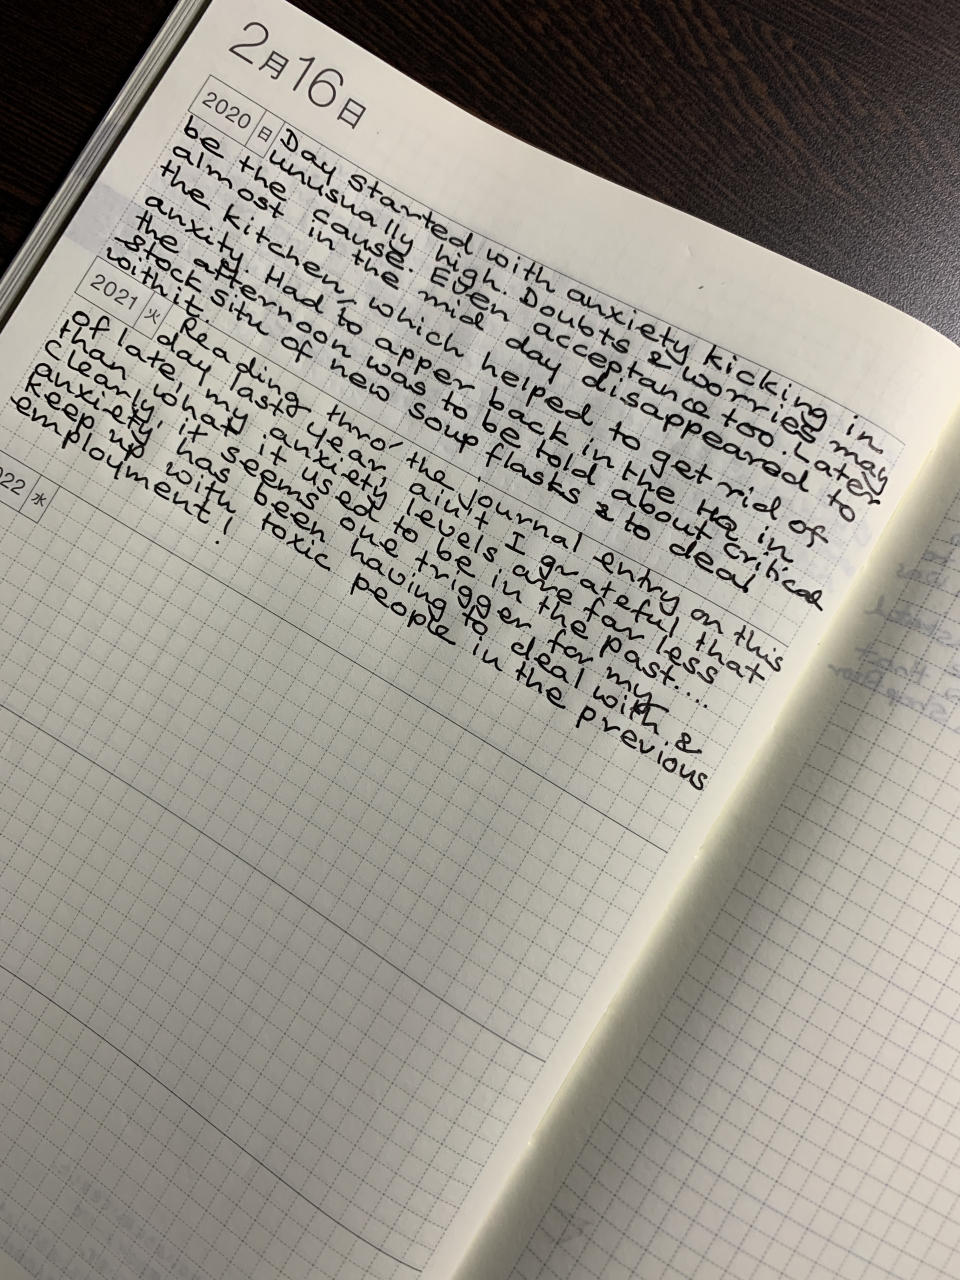 2月16日
2020 日
Day started with anxiety kicking in
unusually high. Doubts & worries may
be the cause. Even acceptance too. Later
almost in the mid day disappeared to
the kitchen, which helped to get rid of
anxity. Had to apper back in the HQ in
the afternoon was to be told about critical
stock situ of new soup flasks & to deal
with it.
2021 火
Reading thro' the journal entry on this
day last year, aint I grateful that
of late, my anxiety levels are far less
than what it used to be in the past....
Clearly, it seems one trigger for my
anxiety has been having to deal with, &
keep up with toxic people in the previous
employment!
022 水